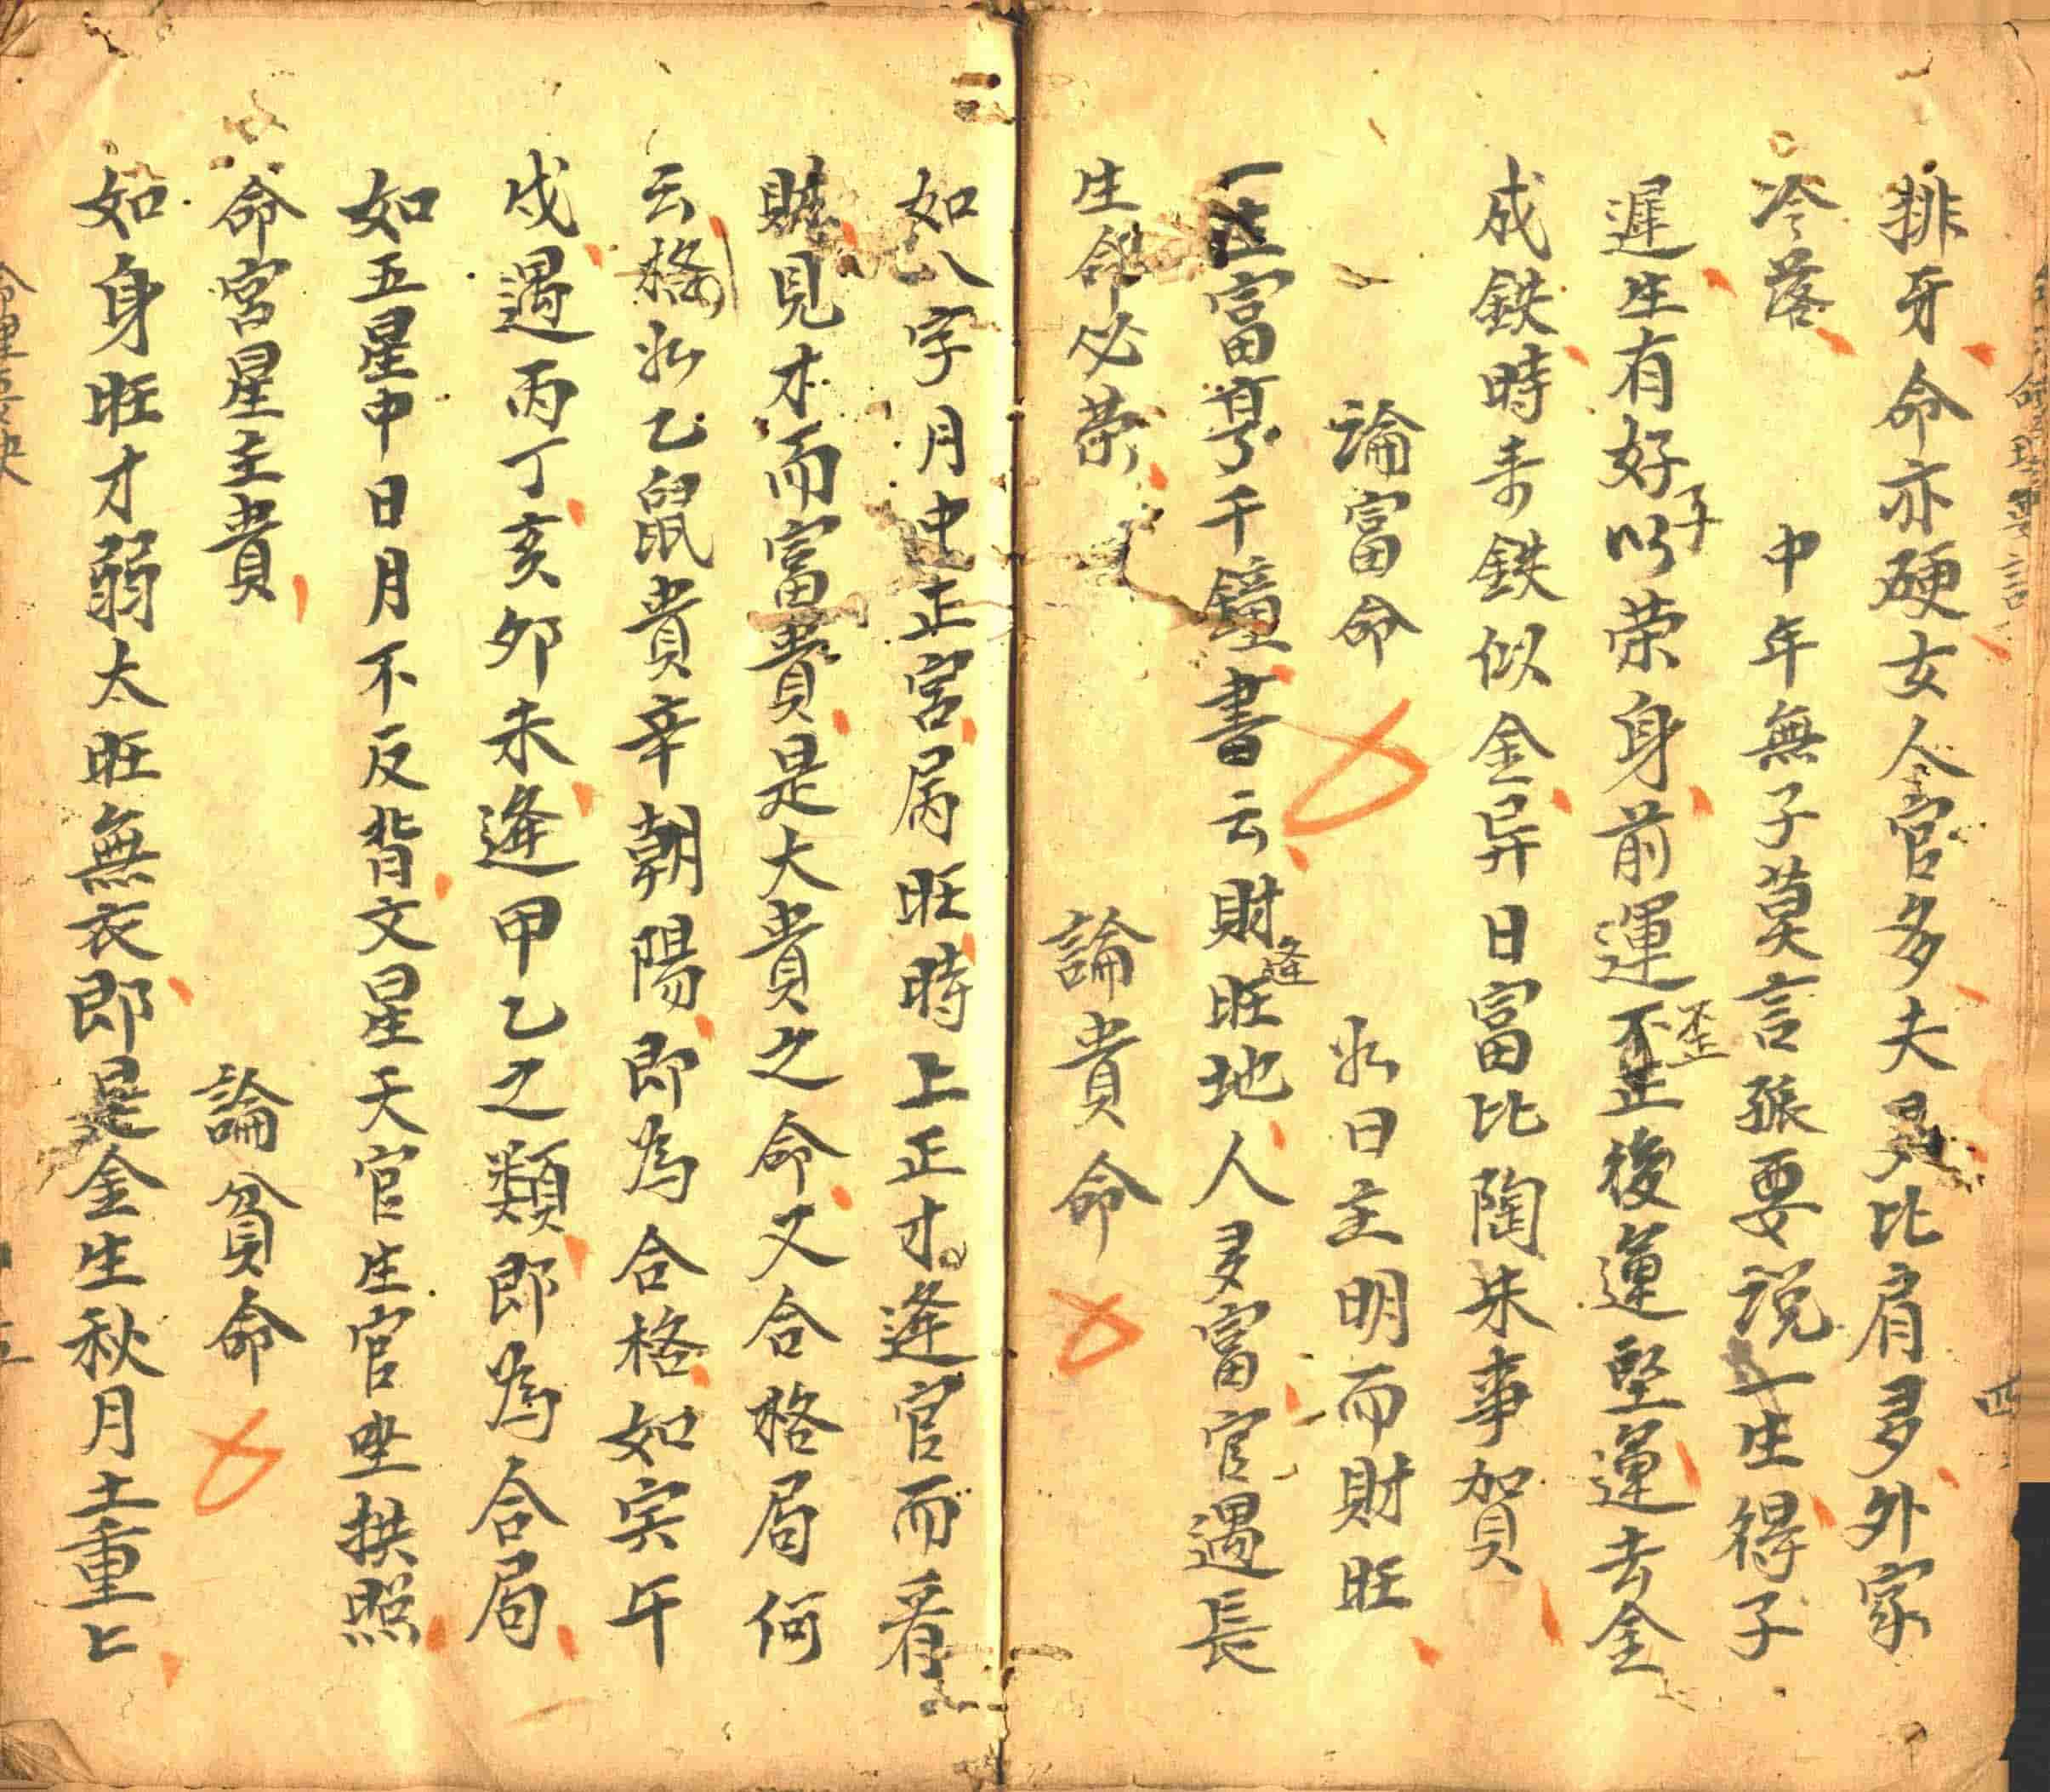 排牙命亦硬女人官多夫多比肩多外家
冷落　中年無子莫言張要説一生得子
遲生有好子以荣身前運不正歪後運堅運去金
成鉄時来鉄似金异日富比陶朱事加貝
論富命　必日主明而財旺
一生富享千鐘書云財逢旺地人多富官遇長
生命必荣　論貴命
如八字月中正官局旺時上正才逢官而看
財見才而富貴是大貴之命又合格局何
云格必乙鼠貴辛朝陽即為合格如寅午
戌遇丙丁亥夘未逢甲乙之類即為合局
如五星中日月不反背文星天官生官坐拱照
命宮星主貴　論貧命
如身旺才弱太旺無衣即是金生秋月土重〻
四